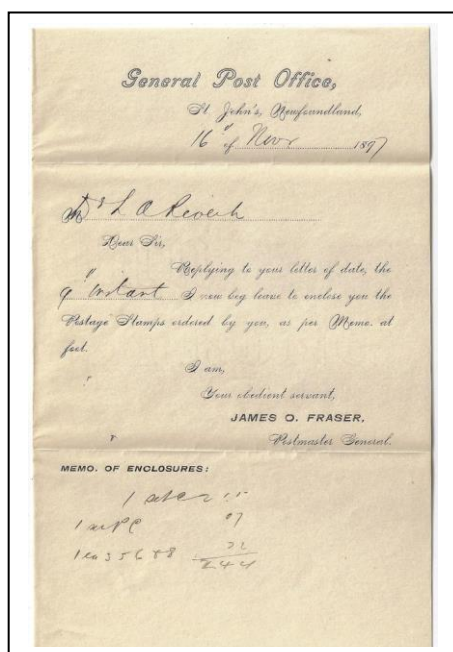 General Post Office,
St. John's, Newfoundland,
16" of Novr 1897
Dr L O
Dear Sir,
Replying to your letter of date, the
9" instant I now beg leave to enclose you the
Postage Stamps ordered by you, as per Memo. at
foot.
I am,
Your obedient servant,
JAMES O. FRASER.
Postmaster General.
MEMO. OF ENCLOSURES:
1
1 07
1 ea 3 5 6 & 8
2 44